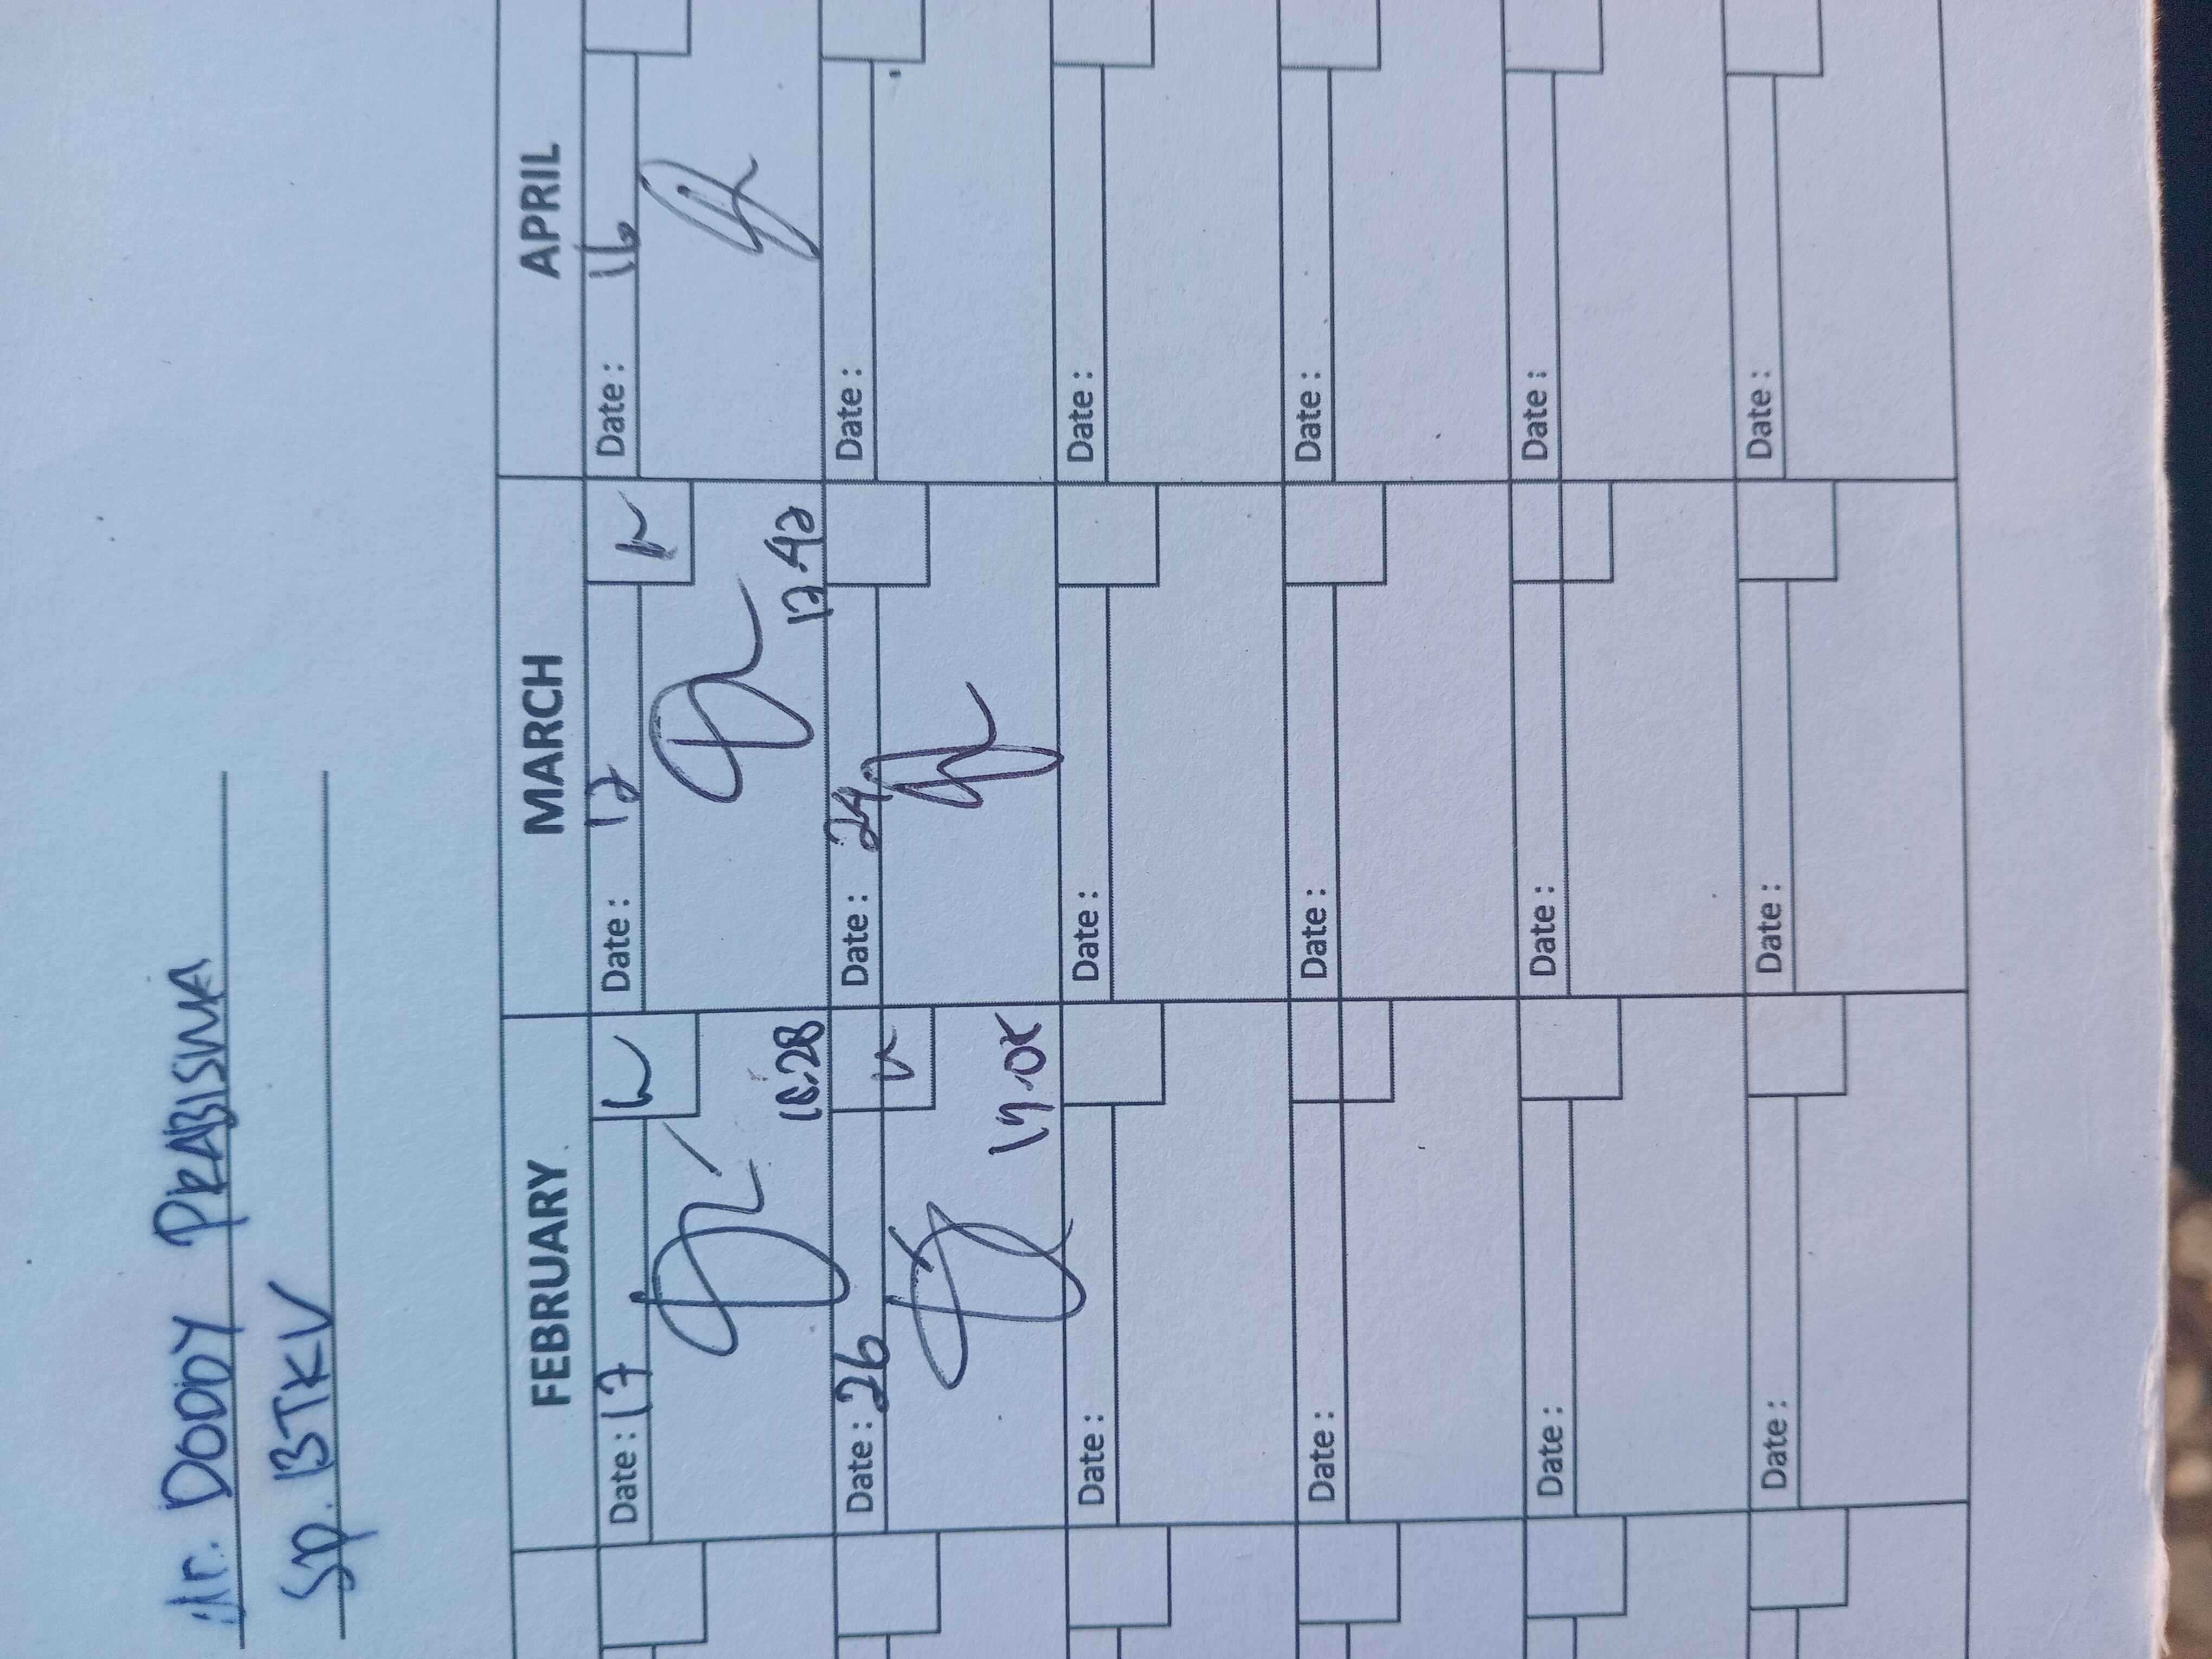 dr. DODDY PRABISMA
Sp. BTKV
FEBRUARY MARCH APRIL
Date : 17 Date : 12 Date : 16
12.42
Date : 26 Date : 24 Date :
Date : Date : Date :
Date : Date : Date :
Date : Date : Date :
Date : Date : Date :